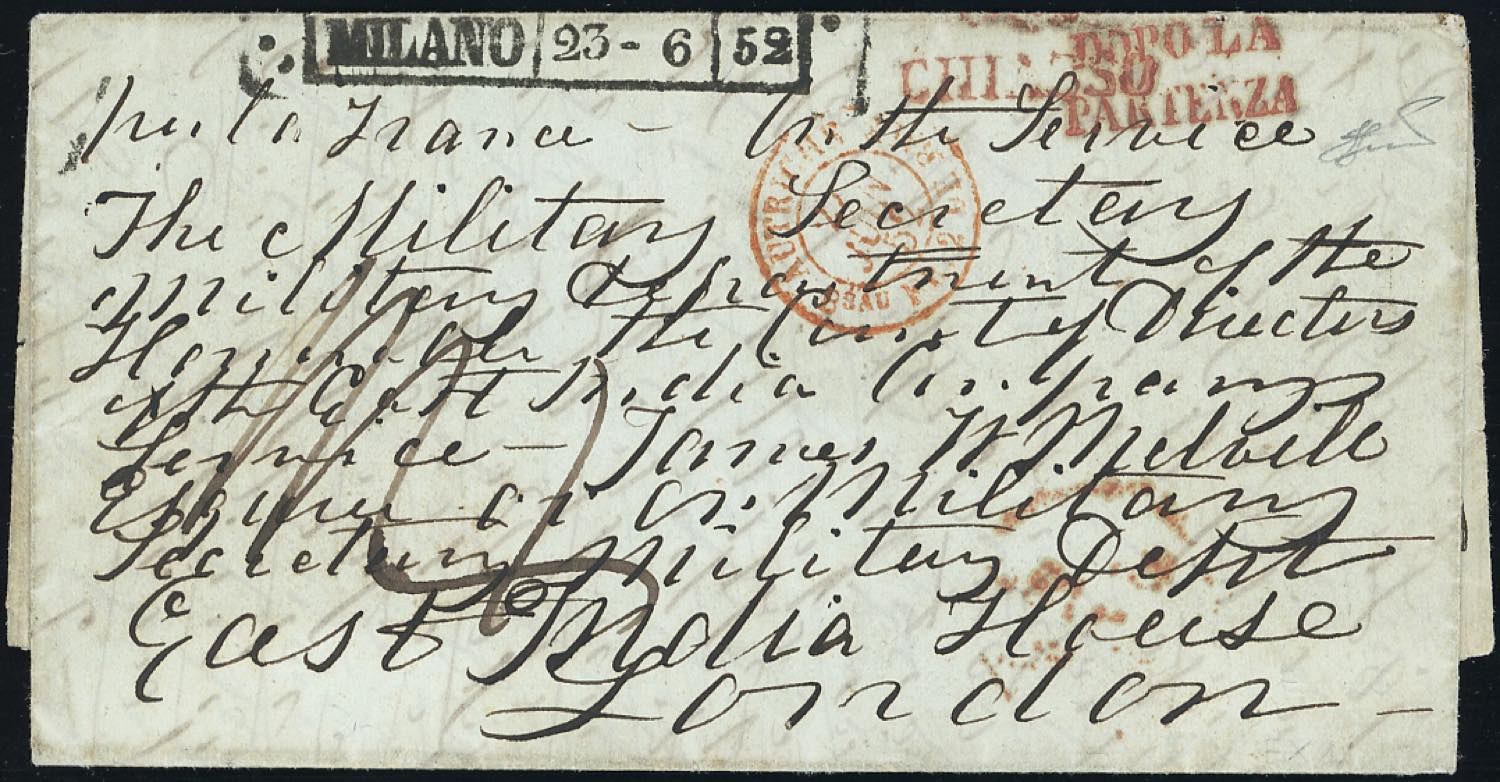 MILANO 23 - 6 52
DOPO LA
PARTENZA
CHIASSO
per la France - On the Service
The Military Secretary
Military Department of the
Honourable the Court of Directors
of the East India Company
Service - James W Melvill
Esquire or or Military
Secretary Military Dept
East India House
London -
AUTRICHE